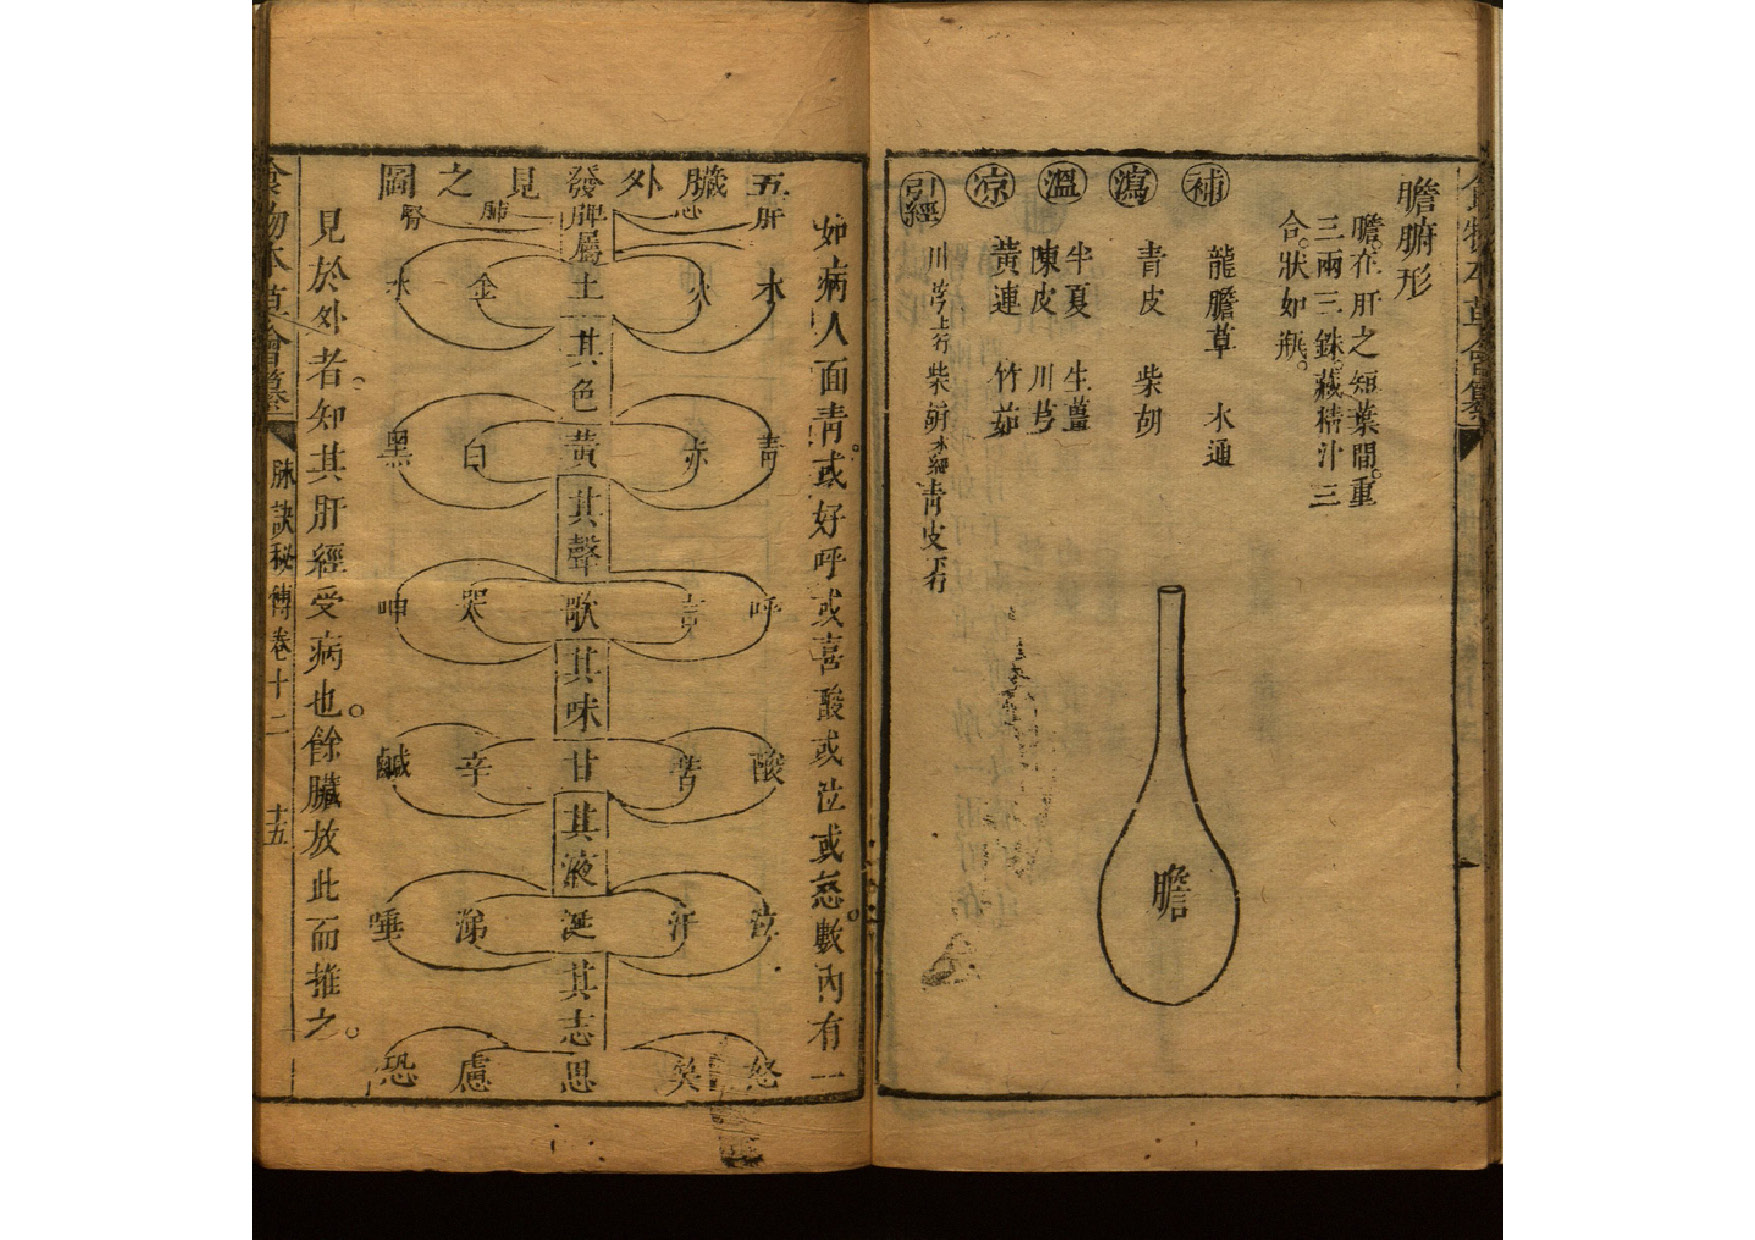 膽腑形
膽。在肝之短葉間。重
三兩三銖。藏精汁三
合。狀如瓶。
補 龍膽草 木通
瀉 青皮 柴胡
溫 半夏 生薑
陳皮 川芎
涼 黃連 竹茹
引經 川芎上行 柴胡本經 青皮下行
膽
如病人面青。或好呼或喜酸或泣或怒。數內有一
五臟外發見之圖
肝 心 脾 肺 腎
屬
木 火 土 金 水
其色
青 赤 黃 白 黑
其聲
呼 言 歌 哭 呻
其味
酸 苦 甘 辛 鹹
其液
泣 汗 涎 涕 唾
其志
怒 笑 思 慮 恐
見於外者。知其肝經受病也。餘臟放此而推之。
食物本草會纂 脉訣秘傳卷十二 十五